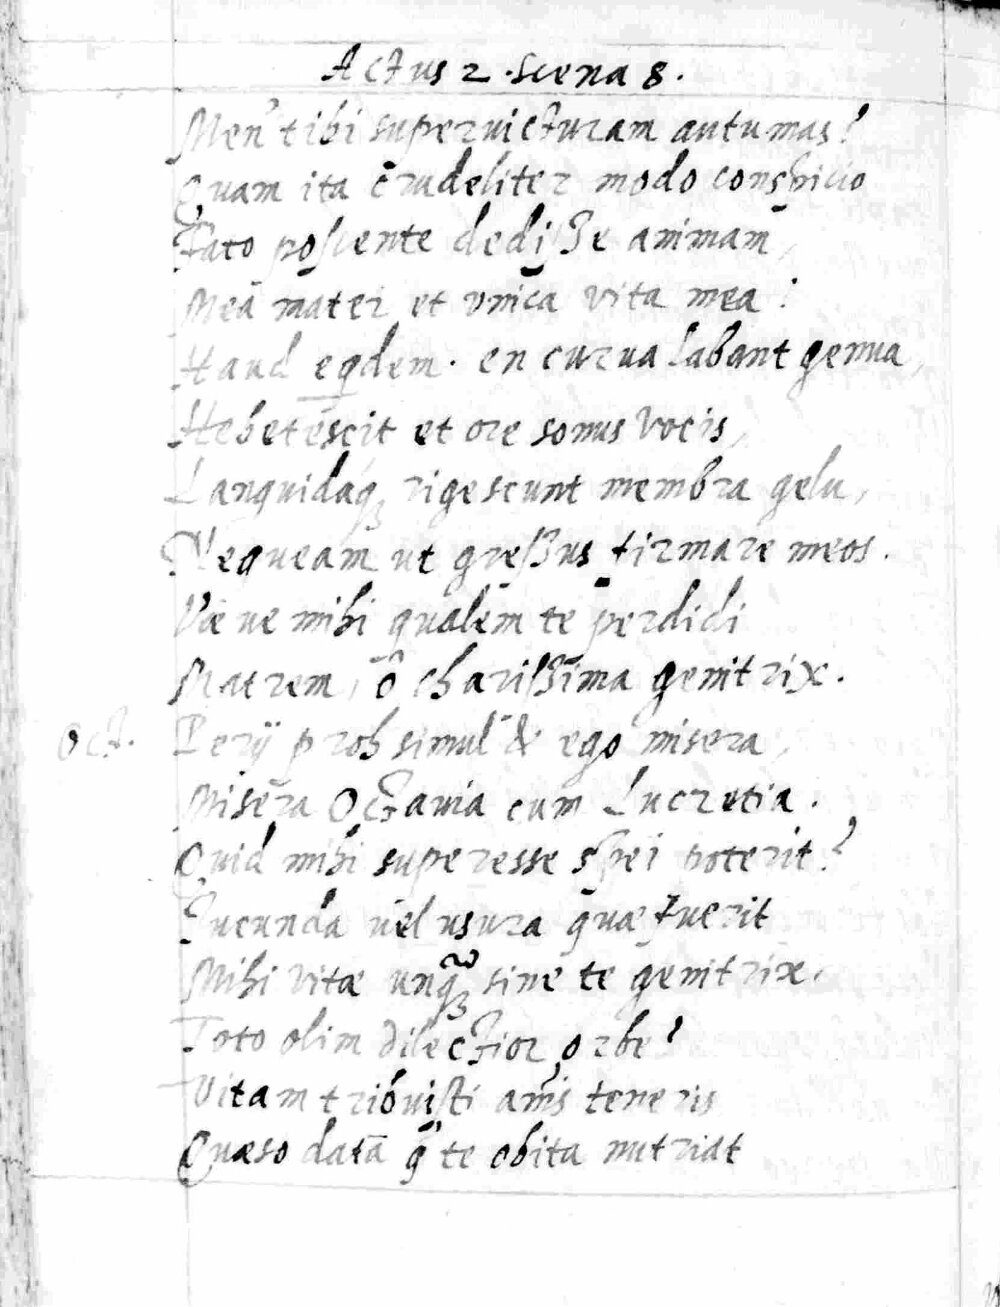 Actus 2 · scena 8.
Men' tibi superuicturam autumas?
Quam ita crudeliter modo conspicio
Fato poscente dedisse animam,
Mea mater et vnica vita mea?
Haud eqdem · en curua labant genua,
Hebetescit et ore sonus vocis,
Languidaq₃ rigescunt membra gelu,
Nequeam ut gressus firmare meos.
Væ ue mihi qualem te perdidi
Matrem, ô charissima genitrix.
Oct. Perÿ proh simul & ego misera,
Misera Octauia cum Lucretia.
Quid mihi superesse spei poterit?
Iucunda uel usura quæ fuerit
Mihi vitæ unq̃₃ sine te genitrix.
Toto olim dilectior orbe?
Vitam tribuisti teneris
Quæso datā q̄ te obita nutriat